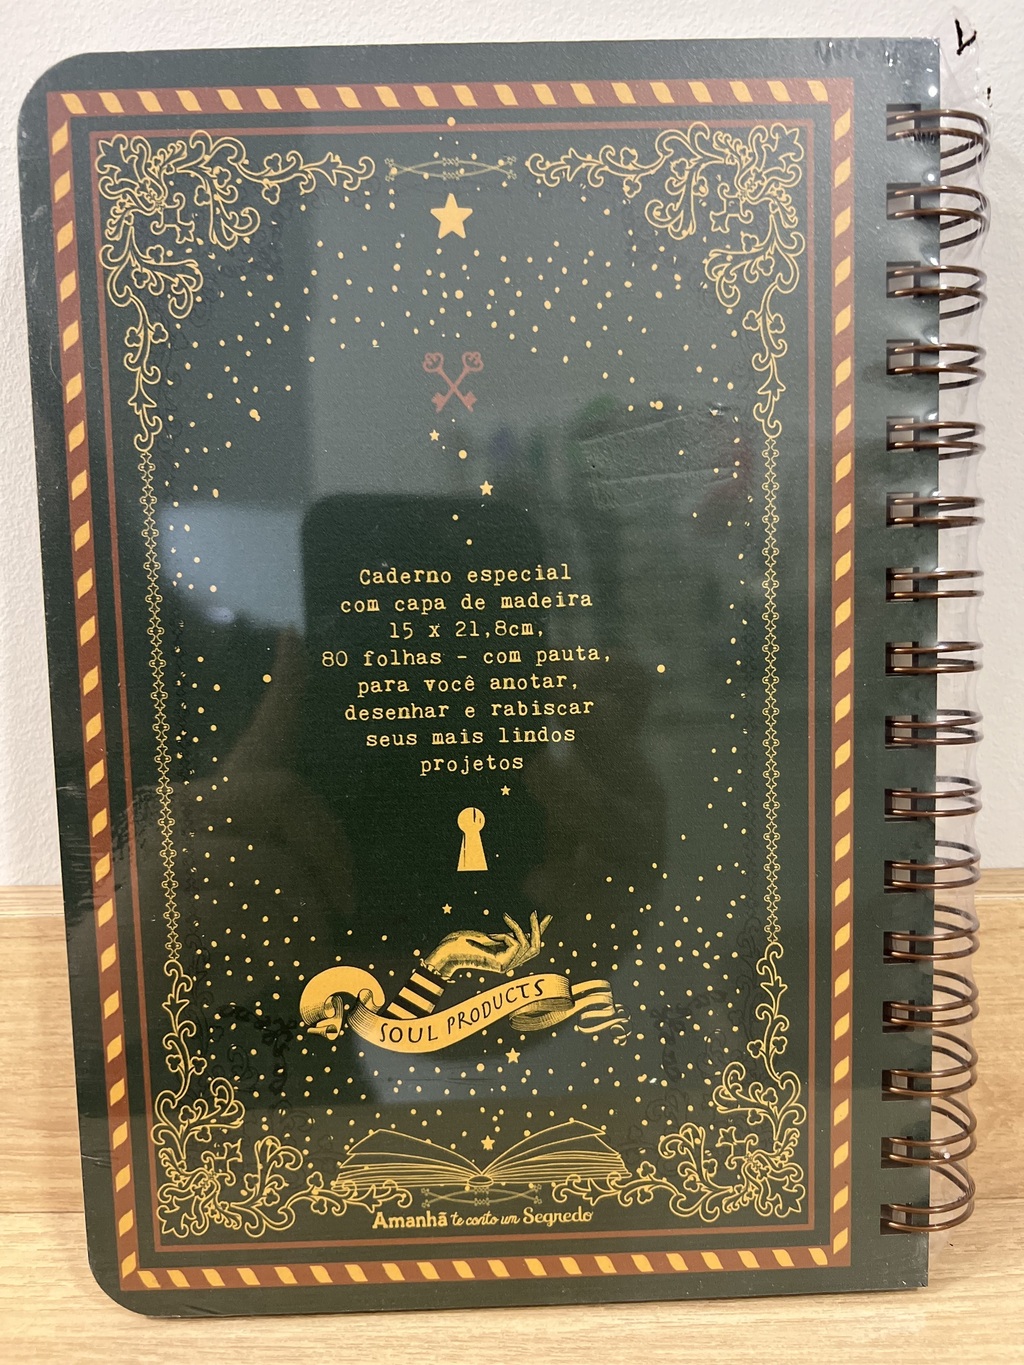 Caderno especial
com capa de madeira
15 x 21,8cm,
80 folhas - com pauta,
para você anotar,
desenhar e rabiscar
seus mais lindos
projetos
SOUL PRODUCTS
Amanhã te conto um Segredo